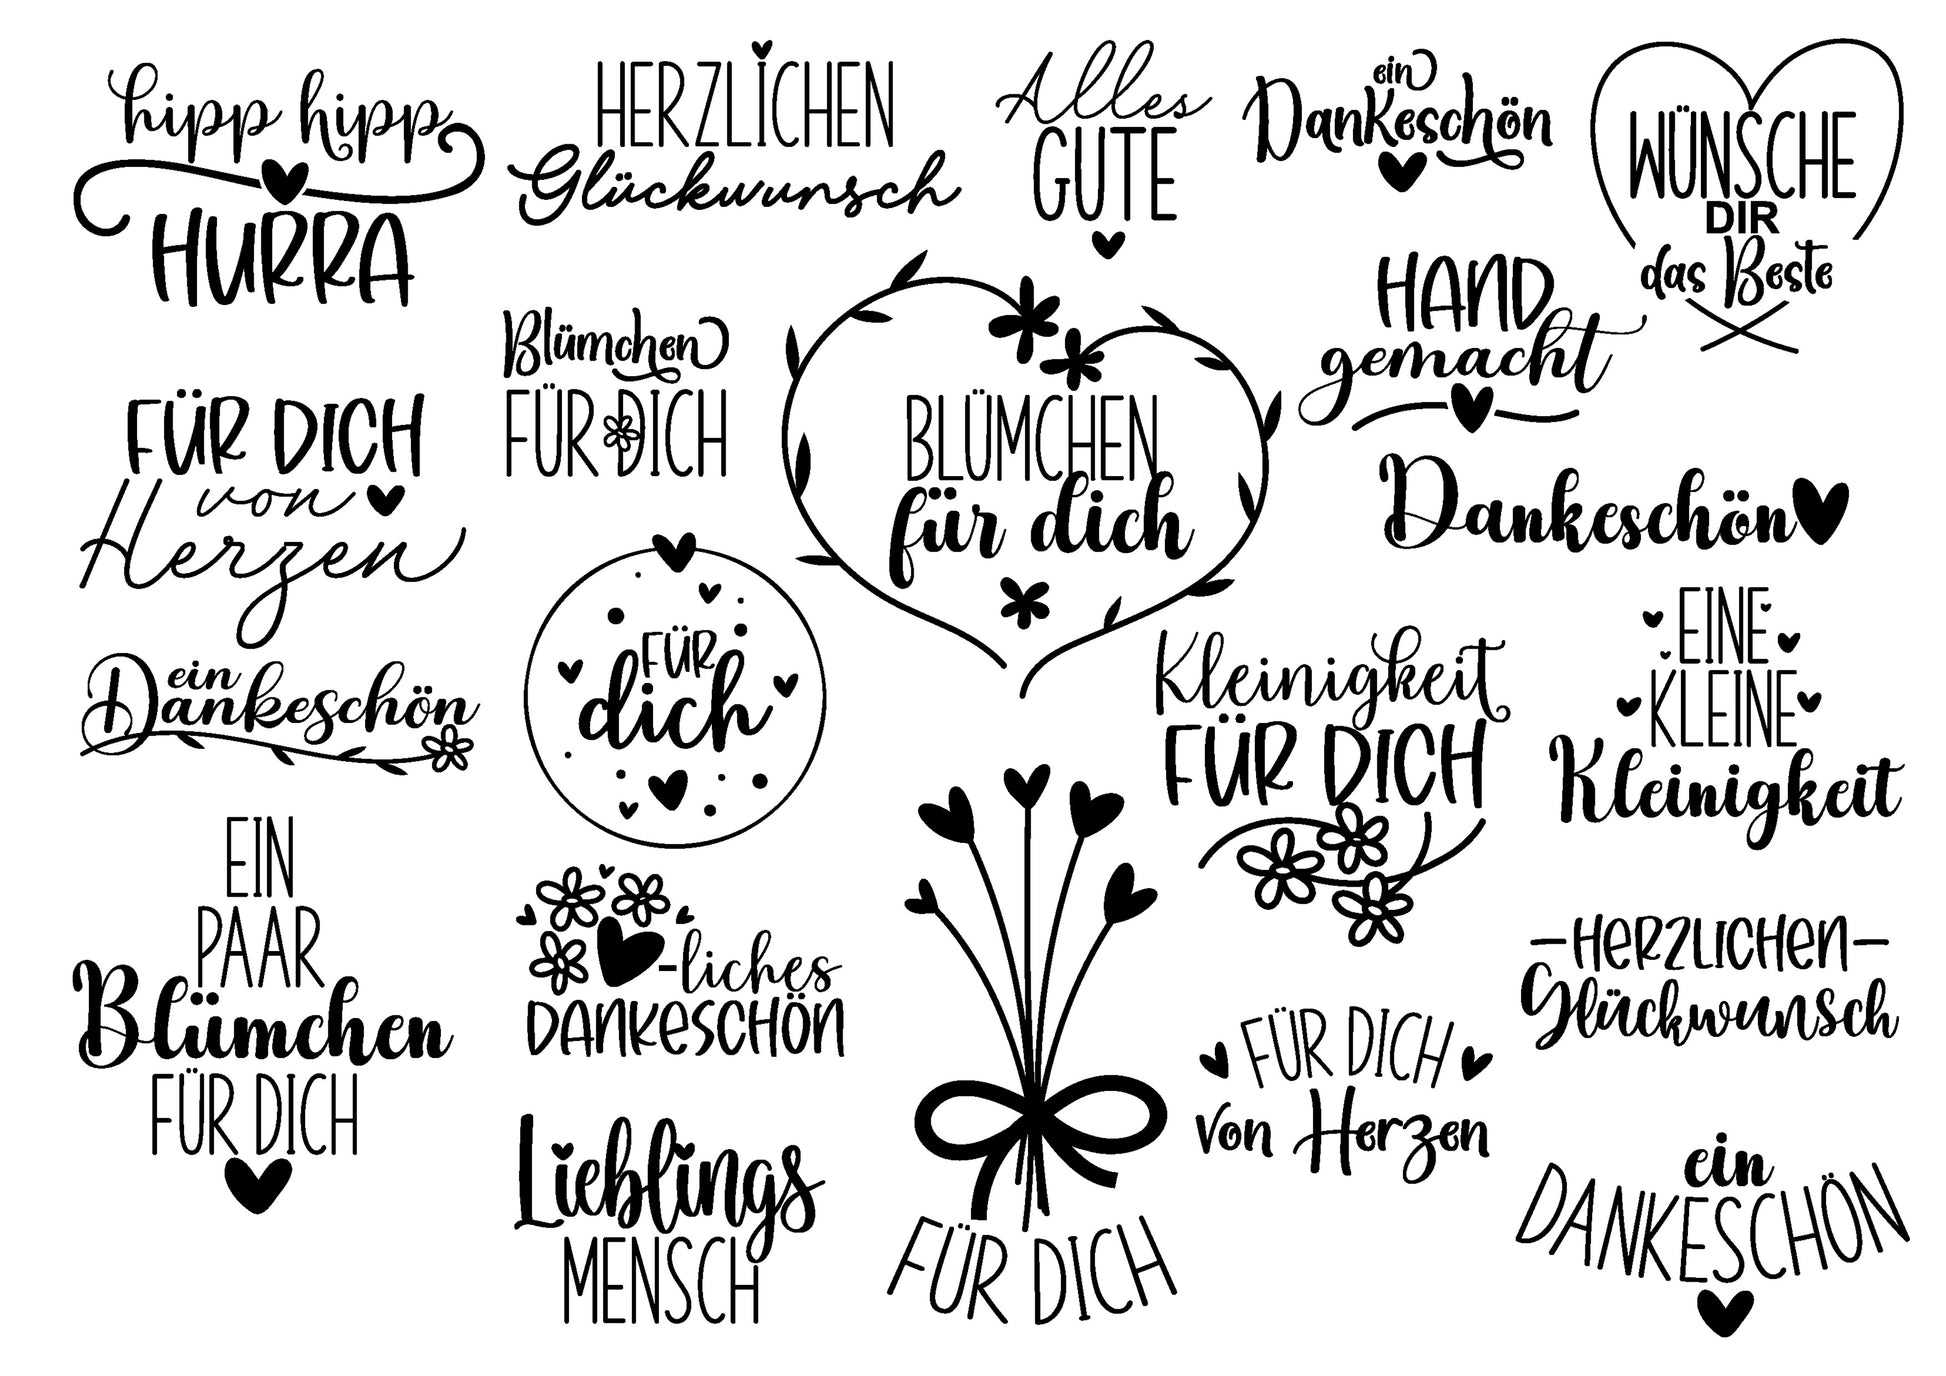 hipp hipp
HURRA
HERZLICHEN
Glückwunsch
Alles
GUTE
ein
Dankeschön
WÜNSCHE
DIR
das Beste
HAND
gemacht
Blümchen
FÜR DICH
BLÜMCHEN
für dich
FÜR DICH
von
Herzen
Dankeschön
FÜR
dich
EINE
KLEINE
Kleinigkeit
Kleinigkeit
FÜR DICH
ein
Dankeschön
EIN
PAAR
Blümchen
FÜR DICH
-liches
DANKESCHÖN
-HERZLICHEN-
Glückwunsch
FÜR DICH
von Herzen
Lieblings
MENSCH
FÜR DICH
ein
DANKESCHÖN